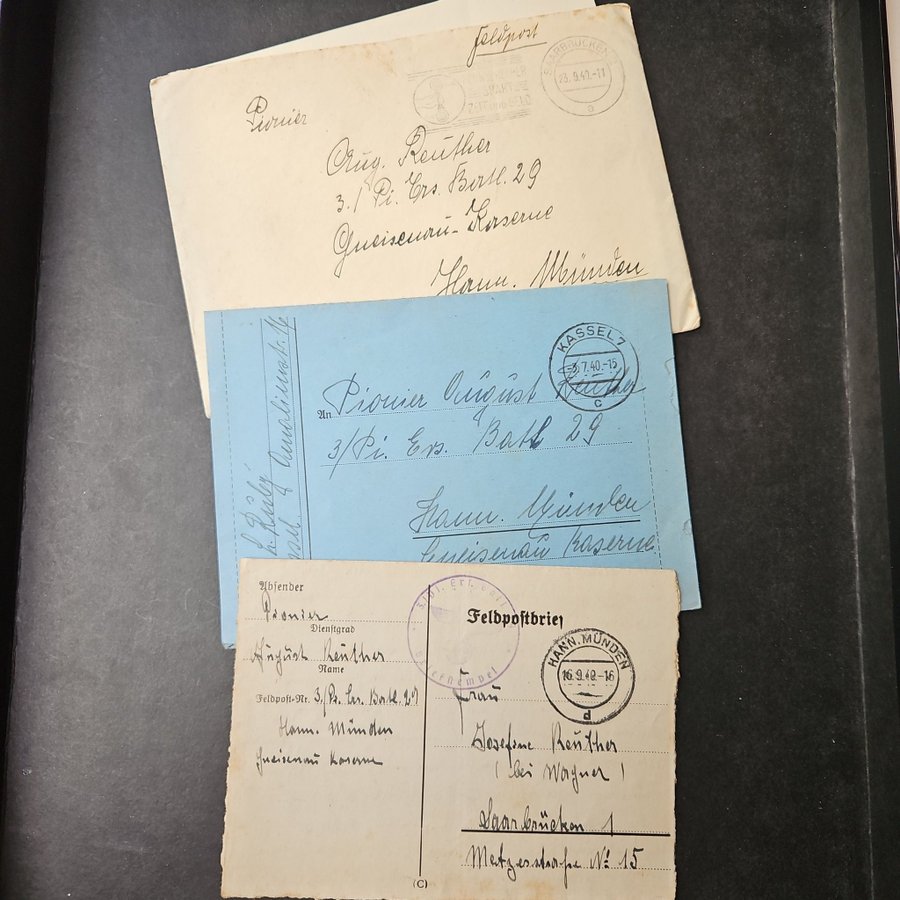 Feldpost
SAARBRÜCKEN
23.9.40.-11
a
Pionier
Aug. Reuther
3./Pi. Ers. Batl. 29
Gneisenau-Kaserne
Hann. Münden
KASSEL 7
3.7.40.-15
c
An Pionier August Reuther
3/Pi. Ers. Batl 29
Hann. Münden
Gneisenau Kaserne
Amalienstr. 16
Absender
Pionier
Dienstgrad
August Reuther
Name
Feldpost-Nr. 3./Pi. Ers. Batl. 29
Hann. Münden
Gneisenau Kaserne
Feldpostbrief
HANN. MÜNDEN
16.9.40.-16
d
Frau
Josefine Reuther
(bei Wagner)
Saarbrücken 1
Metzerstraße No 15
(C)